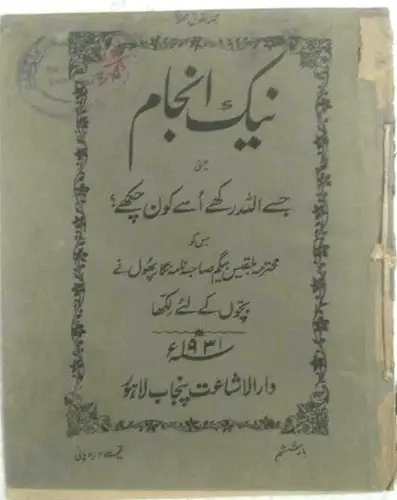 نیک انجام
یعنی
جسے اللہ رکھے اُسے کون چکھے؟
جس کو
محترمہ بلقیس بیگم صاحبہ نامہ نگار پھول نے
بچّوں کے لئے لکھا
سنہ ۱۹۳۱ء
دار الاشاعت پنجاب لاہور
بار ششم
قیمت